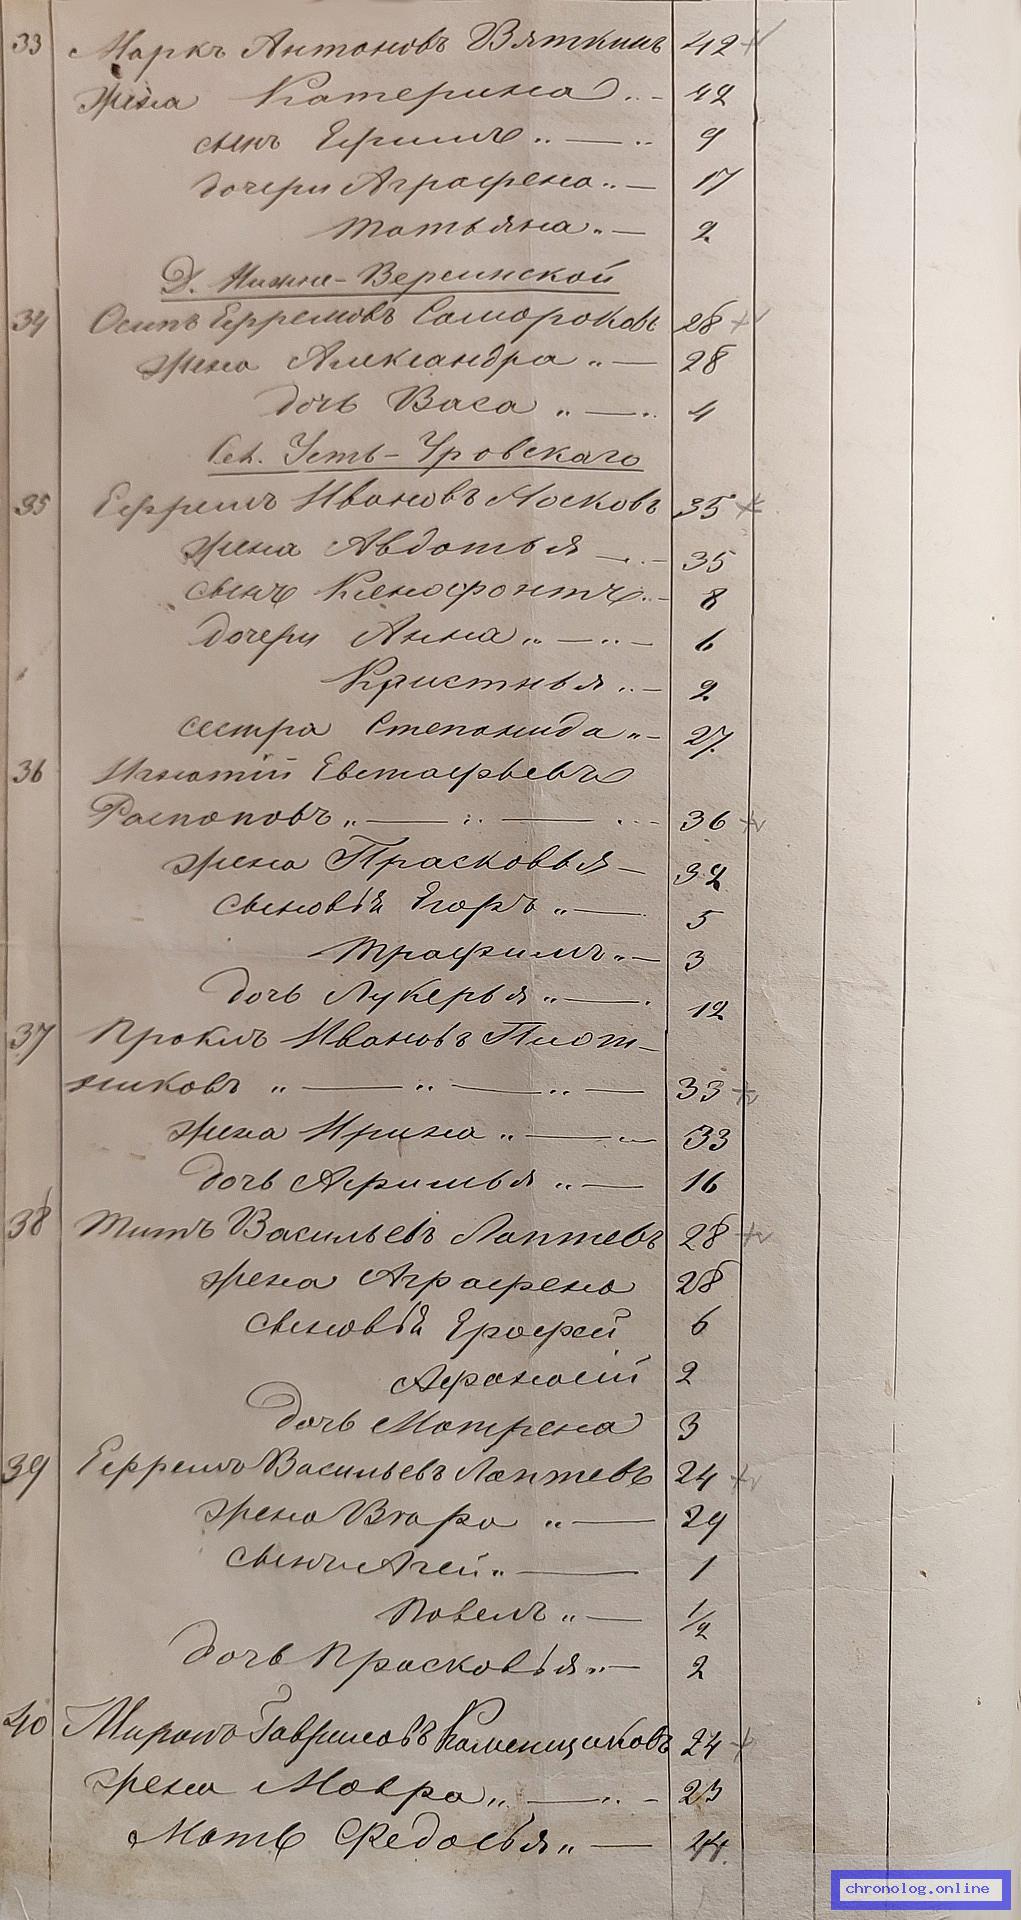 33 Маркъ Антоновъ Вяткинъ 42
жена Катерина „ — 42
сынъ Ефимъ „ — „ 9
дочери Аграфена „ — 17
Татьяна „ — 2
Д. Нижне-Верейнской
34 Осипъ Ефремовъ Самороковъ 28
жена Александра „ — 28
дочь Васа „ — „ 4
Сел. Усть-Уровскаго
35 Ефремъ Ивановъ Москов 35
жена Авдотья — „ — 35
сынъ Ксенофонтъ „ — 8
дочери Анна „ — „ — 6
Кристинья „ — 2
сестра Степанида „ — 27
36 Игнатій Евстафьевъ
Распоповъ „ — „ — „ 36
жена Прасковья — 32
сыновья Егоръ „ — 5
Трафимъ „ — 3
дочь Лукерья „ — 12
37 Проклъ Ивановъ Плот-
никовъ „ — „ — „ — 33
жена Ирина „ — „ — 33
дочь Афимья „ — 16
38 Титъ Васильевъ Лаптевъ 28
жена Аграфена 28
сыновья Ерофей 6
Афанасій 2
дочь Матрена 3
39 Ефремъ Васильевъ Лаптевъ 24
жена Варвара „ — 29
сынъ Агей „ — 1
Павелъ „ — 1/2
дочь Прасковья „ — 2
40 Миронъ Гавриловъ Каменщиковъ 24
жена Мавра „ — „ — 23
Мать Федосья „ — 44.
chronolog.online